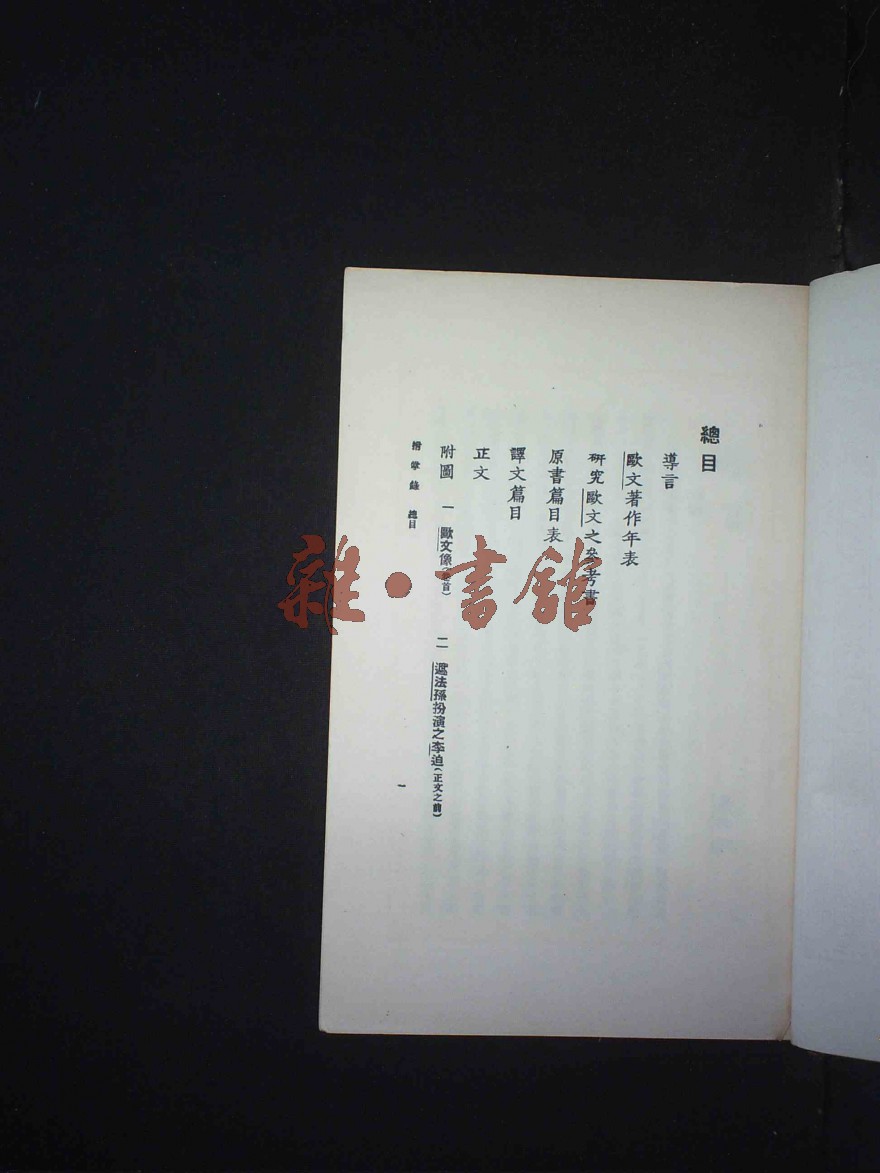 總目
導言
歐文著作年表
研究歐文之參考書
原書篇目表
譯文篇目
正文
附圖 一 歐文像(卷首) 二 遮法孫扮演之李迫(正文之前)
拊掌錄 總目
一
雜·書館